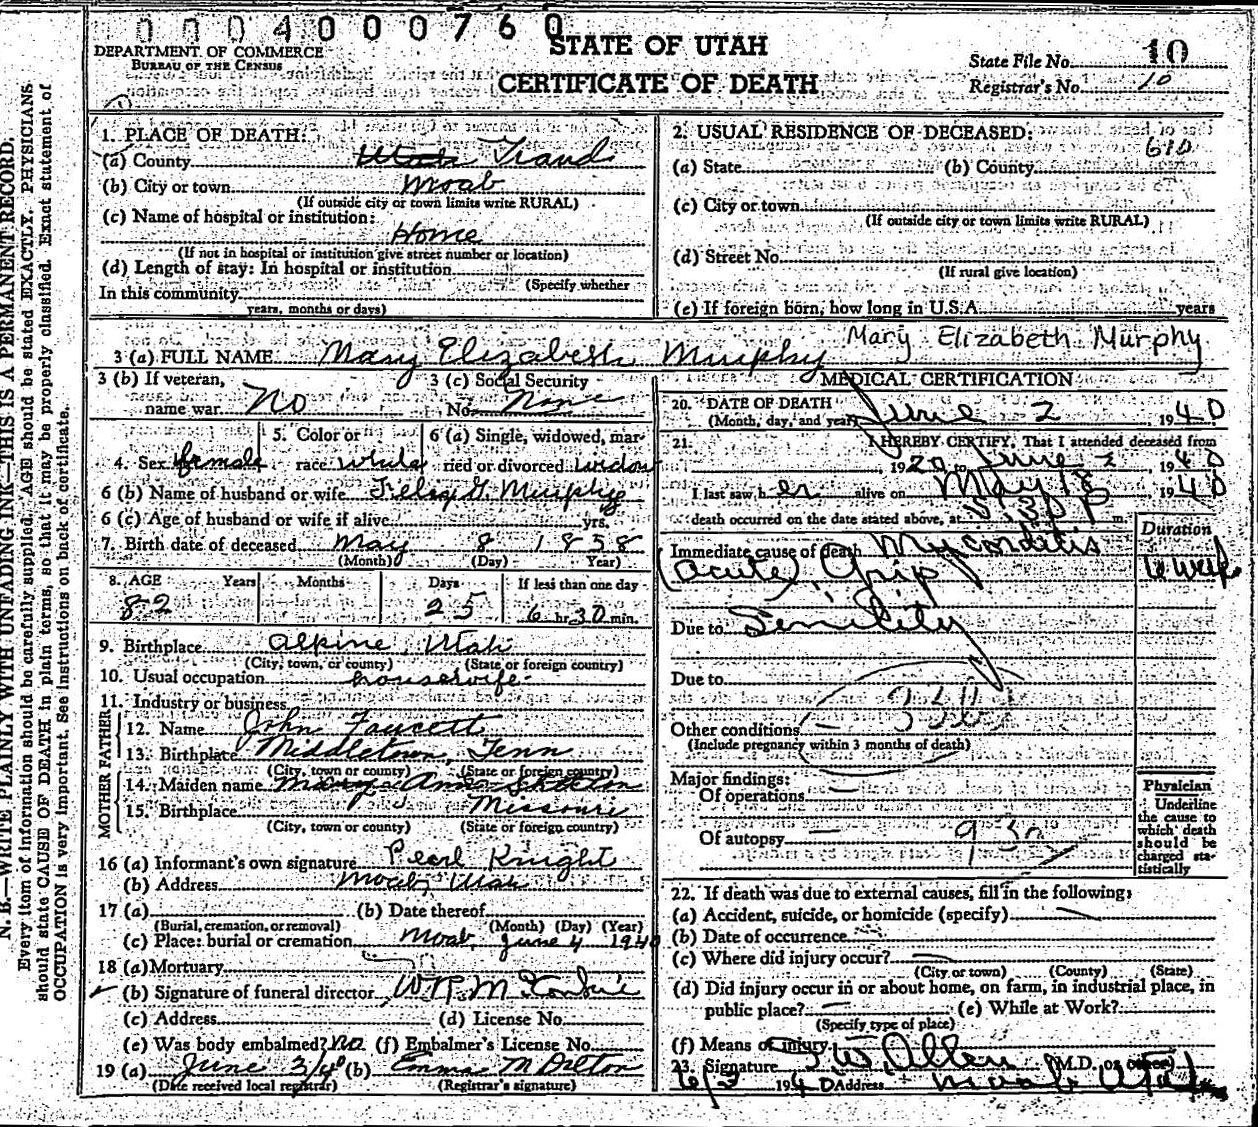 0004000760
STATE OF UTAH
CERTIFICATE OF DEATH
DEPARTMENT OF COMMERCE
BUREAU OF THE CENSUS
State File No. 10
Registrar's No. 10
N. B.—WRITE PLAINLY WITH UNFADING INK—THIS IS A PERMANENT RECORD.
Every item of information should be carefully supplied. AGE should be stated EXACTLY. PHYSICIANS
should state CAUSE OF DEATH in plain terms, so that it may be properly classified. Exact statement of
OCCUPATION is very important. See instructions on back of certificate.
1. PLACE OF DEATH:
(a) County Grand
(b) City or town Moab
(If outside city or town limits write RURAL)
(c) Name of hospital or institution:
Home
(If not in hospital or institution give street number or location)
(d) Length of stay: In hospital or institution
(Specify whether
In this community
years, months or days)
2. USUAL RESIDENCE OF DECEASED:
610
(a) State (b) County
(c) City or town
(If outside city or town limits write RURAL)
(d) Street No.
(If rural give location)
(e) If foreign born, how long in U.S.A. years
3 (a) FULL NAME Mary Elizabeth Murphy Mary Elizabeth Murphy
3 (b) If veteran, name war No
3 (c) Social Security No. None
4. Sex female
5. Color or race white
6 (a) Single, widowed, married or divorced widow
6 (b) Name of husband or wife Felix G. Murphy
6 (c) Age of husband or wife if alive yrs.
7. Birth date of deceased May 8 1858
(Month) (Day) Year)
8. AGE Years Months Days If less than one day
82 25 6 hr. 30 min.
9. Birthplace Alpine, Utah
(City, town, or county) (State or foreign country)
10. Usual occupation housewife
11. Industry or business
FATHER
12. Name John Faucett
13. Birthplace Middletown, Tenn
(City, town or county) (State or foreign country)
MOTHER
14. Maiden name Mary Ann
15. Birthplace Missouri
(City, town or county) (State or foreign country)
16 (a) Informant's own signature Pearl Knight
(b) Address Moab, Utah
17 (a) (b) Date thereof
(Burial, cremation, or removal) (Month) (Day) (Year)
(c) Place: burial or cremation Moab, June 4 1940
18 (a) Mortuary
(b) Signature of funeral director
(c) Address (d) License No.
(e) Was body embalmed? No (f) Embalmer's License No.
19 (a) June 3/40 (b) Emma M
(Date received local registrar) (Registrar's signature)
MEDICAL CERTIFICATION
20. DATE OF DEATH
(Month, day, and year) June 2 1940
21. I HEREBY CERTIFY, That I attended deceased from
1920 to June 2 1940
I last saw her alive on May 18 1940
death occurred on the date stated above, at 5:30 P m.
Duration
Immediate cause of death Myocarditis
(acute), Grip
Due to Senility
Due to
Other conditions —
(Include pregnancy within 3 months of death)
Major findings:
Of operations —
Of autopsy —
Physician
Underline
the cause to
which death
should be
charged sta-
tistically
22. If death was due to external causes, fill in the following:
(a) Accident, suicide, or homicide (specify) —
(b) Date of occurrence
(c) Where did injury occur? —
(City or town) (County) (State)
(d) Did injury occur in or about home, on farm, in industrial place, in
public place? — (e) While at Work?
(Specify type of place)
(f) Means of injury
23. Signature Allen (M.D. or other)
6/3 1940 Address Moab Utah